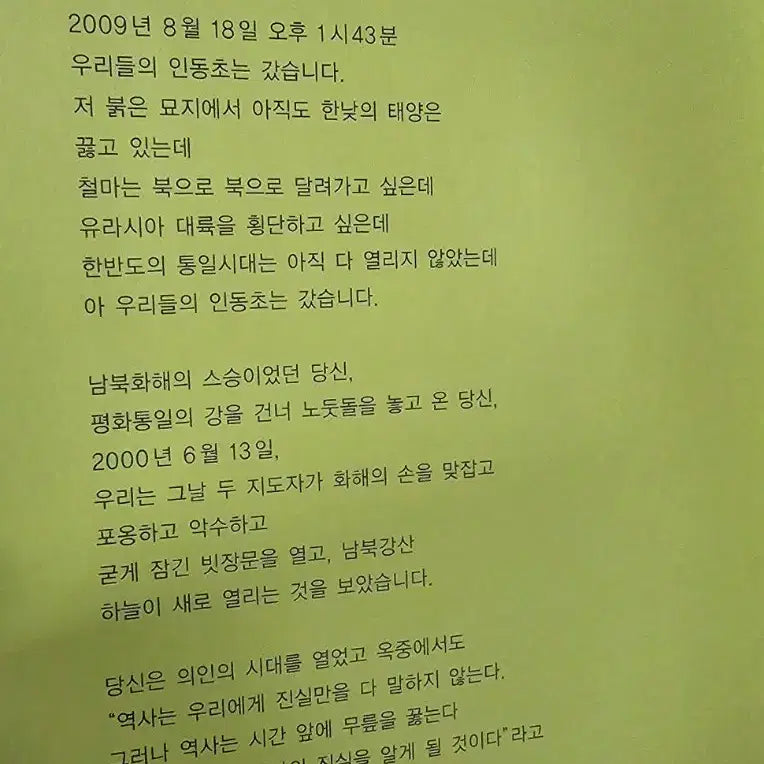 2009년 8월 18일 오후 1시43분
우리들의 인동초는 갔습니다.
저 붉은 묘지에서 아직도 한낮의 태양은
끓고 있는데
철마는 북으로 북으로 달려가고 싶은데
유라시아 대륙을 횡단하고 싶은데
한반도의 통일시대는 아직 다 열리지 않았는데
아 우리들의 인동초는 갔습니다.
남북화해의 스승이었던 당신,
평화통일의 강을 건너 노둣돌을 놓고 온 당신,
2000년 6월 13일,
우리는 그날 두 지도자가 화해의 손을 맞잡고
포옹하고 악수하고
굳게 잠긴 빗장문을 열고, 남북강산
하늘이 새로 열리는 것을 보았습니다.
당신은 의인의 시대를 열었고 옥중에서도
“역사는 우리에게 진실만을 다 말하지 않는다.
그러나 역사는 시간 앞에 무릎을 꿇는다
진실을 알게 될 것이다”라고